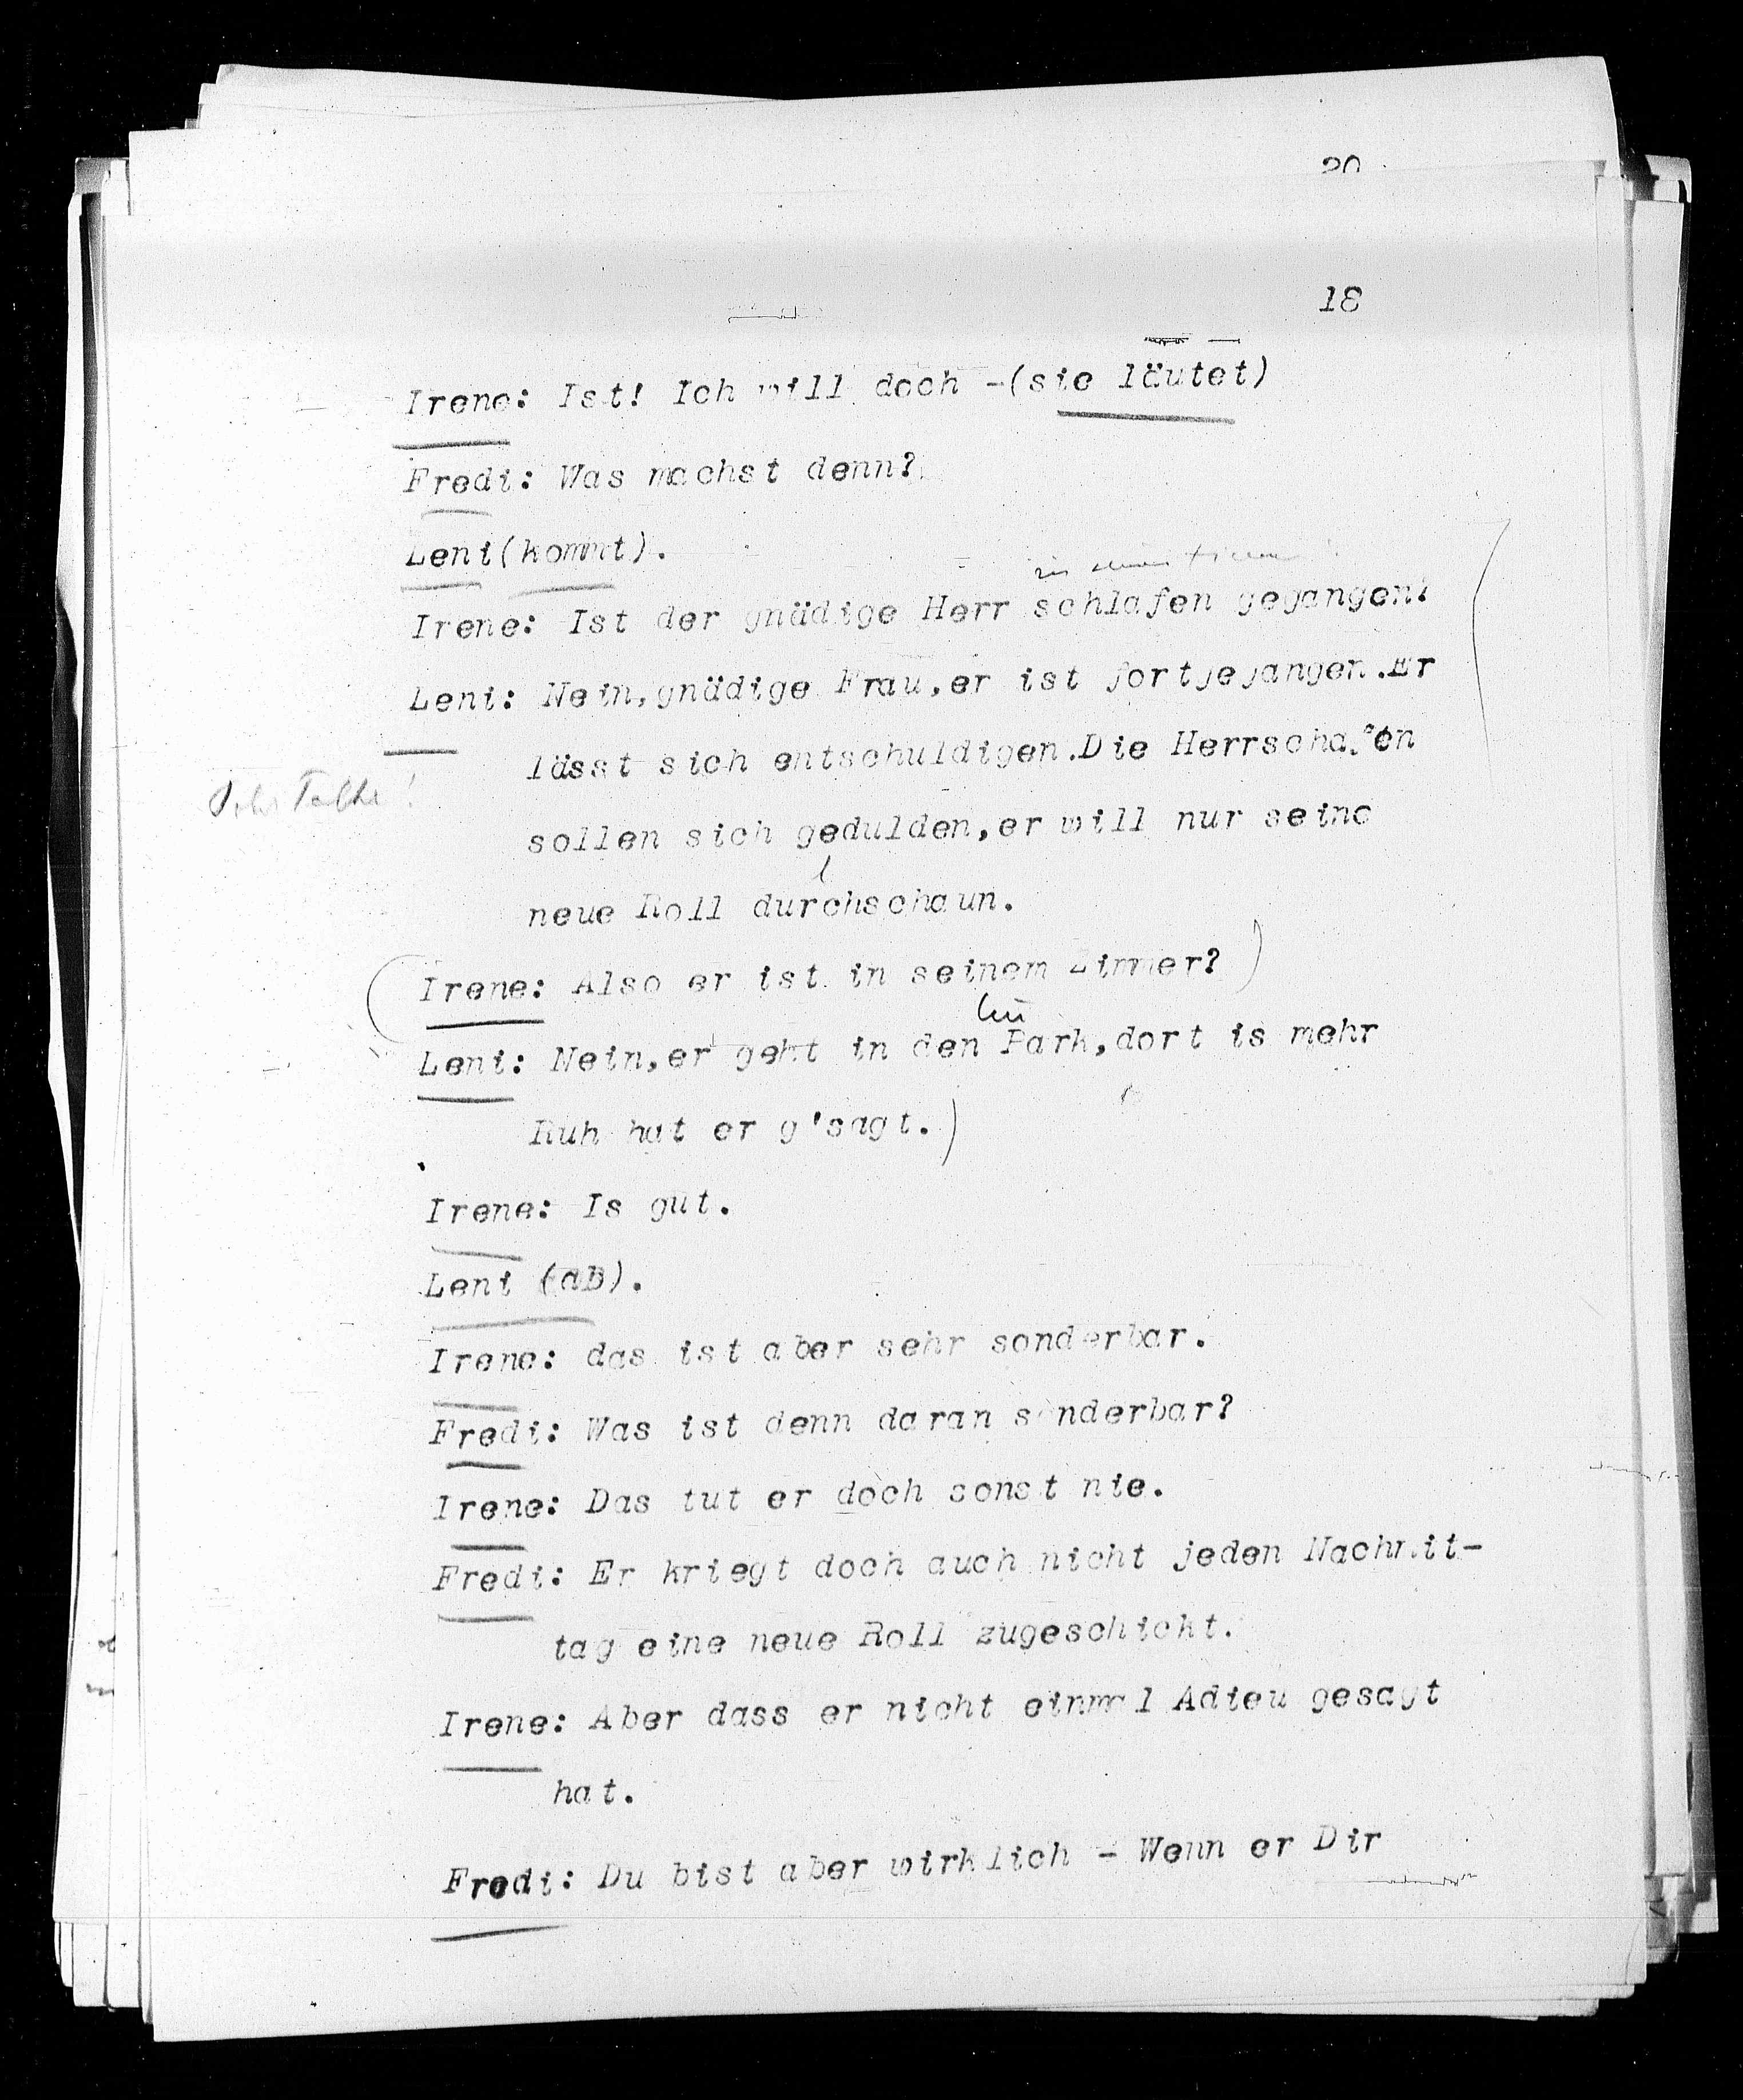 20
18
Irene: Ist! Ich will doch -(sie läutet)
Fredi: Was machst denn?
Leni(kommt).
Irene: Ist der gnädige Herr schlafen gegangen?
Leni: Nein,gnädige Frau,er ist fortgegangen.Er
lässt sich entschuldigen.Die Herrschaften
sollen sich gedulden,er will nur seine
neue Roll durchschaun.
(Irene: Also er ist in seinem Zimmer?)
Leni: Nein,er geht in den Park,dort is mehr
Ruh hat er g'sagt.)
Irene: Is gut.
Leni (ab).
Irene: das ist aber sehr sonderbar.
Fredi: Was ist denn daran sonderbar?
Irene: Das tut er doch sonst nie.
Fredi: Er kriegt doch auch nicht jeden Nachmit-
tag eine neue Roll zugeschickt.
Irene: Aber dass er nicht einmal Adieu gesagt
hat.
Fredi: Du bist aber wirklich - Wenn er Dir